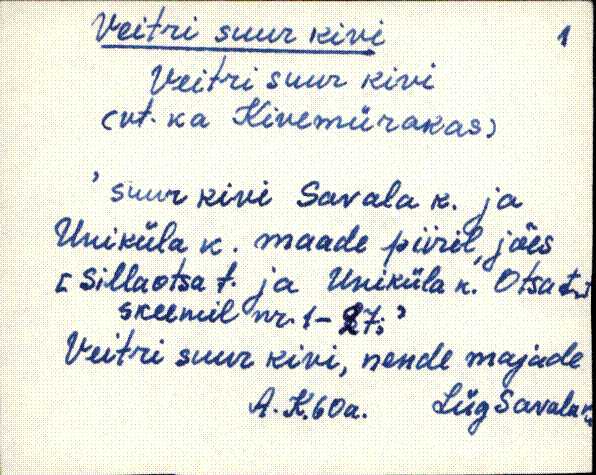 Veitri suur kivi 1
Veitri suur kivi
(vt. ka Kivemürakas)
’suur kivi Savala k. ja
Uniküla k. maade piiril, jões
[Sillaotsa t. ja Uniküla k. Otsa t.]
skeemil nr. 1-27;’
Veitri suur kivi, nende majade
A. K. 60a. Lüg Savala k.